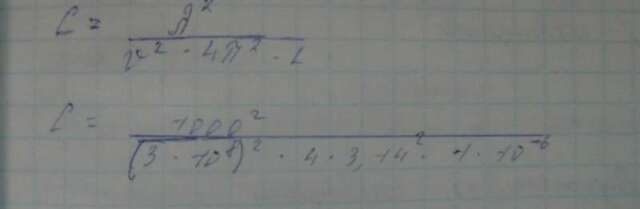 C = λ² / v² · 4π² · L
C = 1000² / (3 · 10⁸)² · 4 · 3,14² · 1 · 10⁻⁶